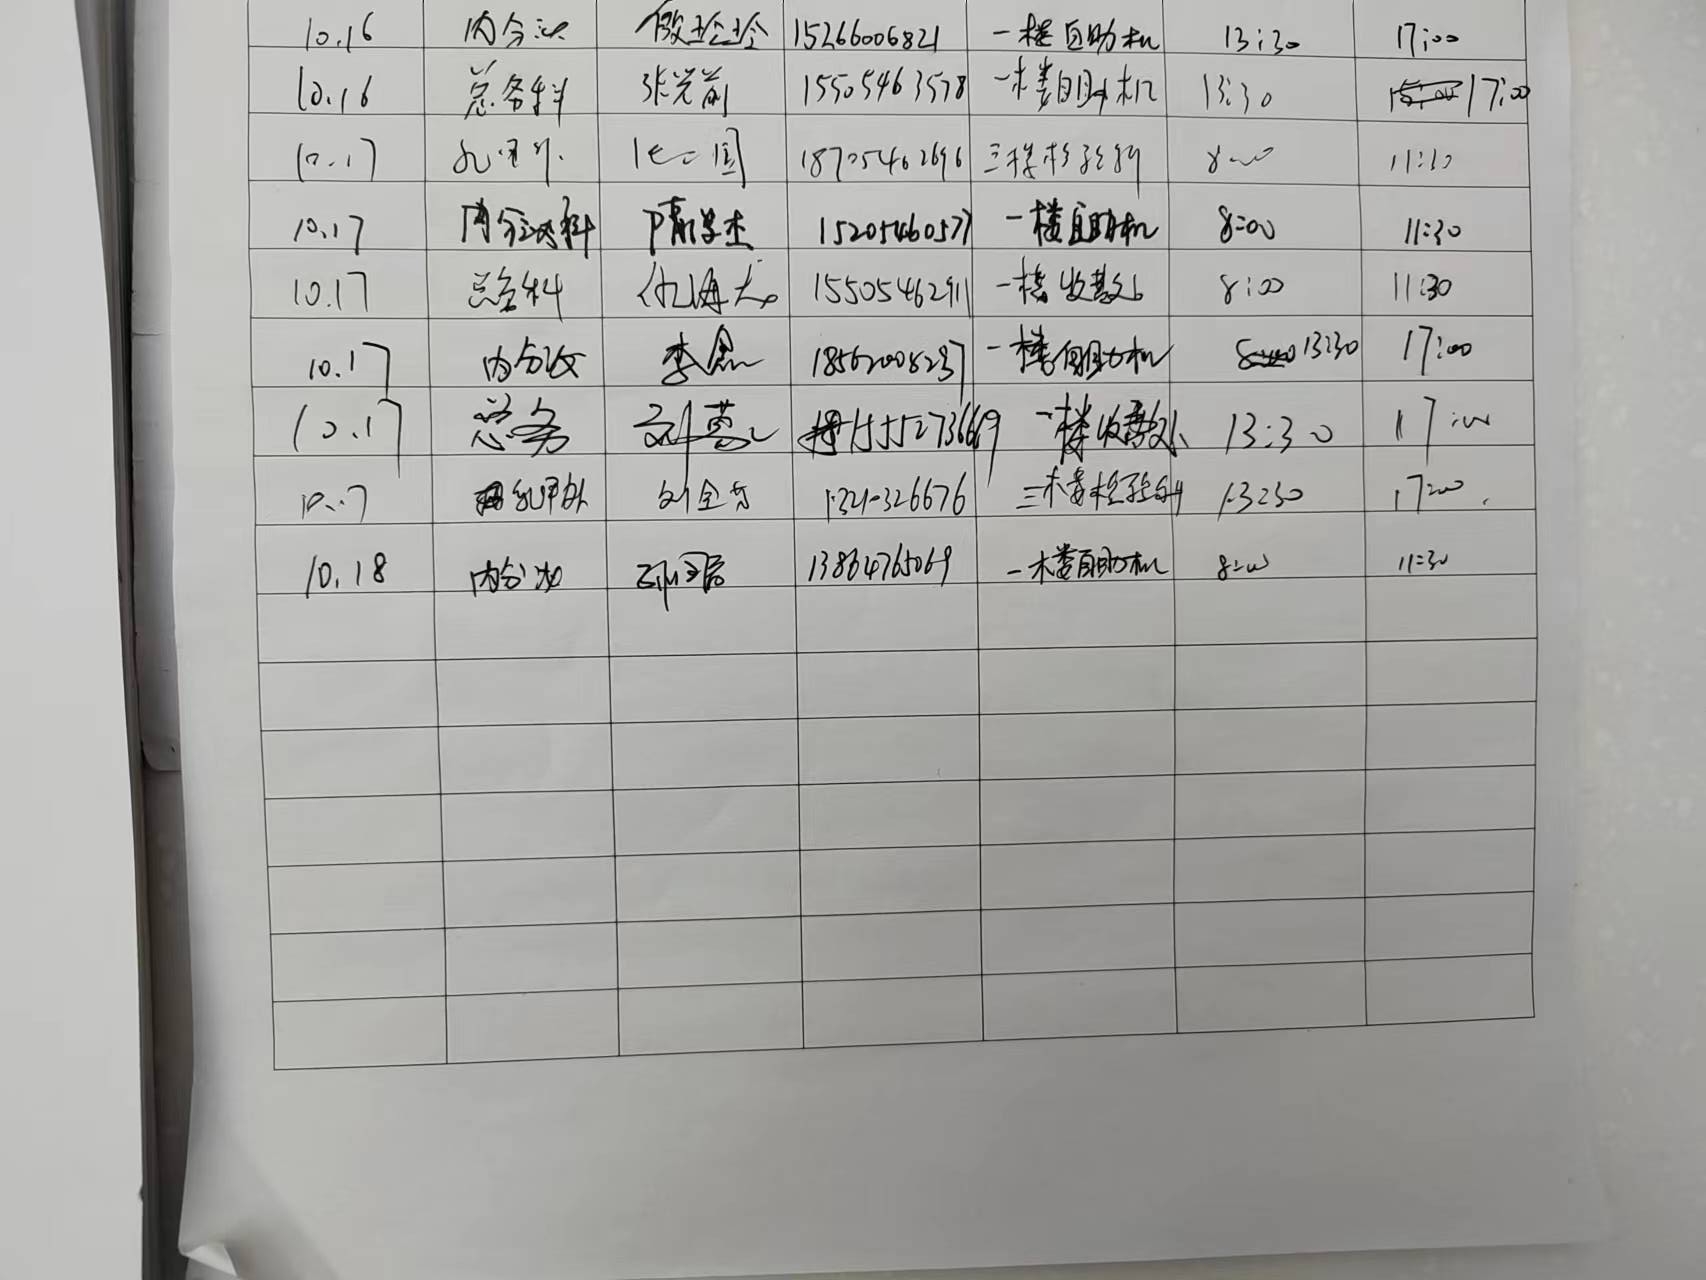 10.16 内分泌 15266006821 一楼自助机 13:30 17:00
10.16 总务科 张光前 15505463578 一楼自助机 13:30 17:00
10.17 18705462696 三楼检验科 8:00 11:30
10.17 内分泌科 隋学杰 15205460577 一楼自助机 8:00 11:30
10.17 总务科 仇海 15505462911 一楼收款处 8:00 11:30
10.17 内分泌 李 18562008237 一楼自助机 13:30 17:00
10.17 总务 刘 15552736619 一楼收款处 13:30 17:00
10.17 乳甲外 刘 三楼检验科 13:30 17:00
10.18 内分泌 13864765069 一楼自助机 8:00 11:30